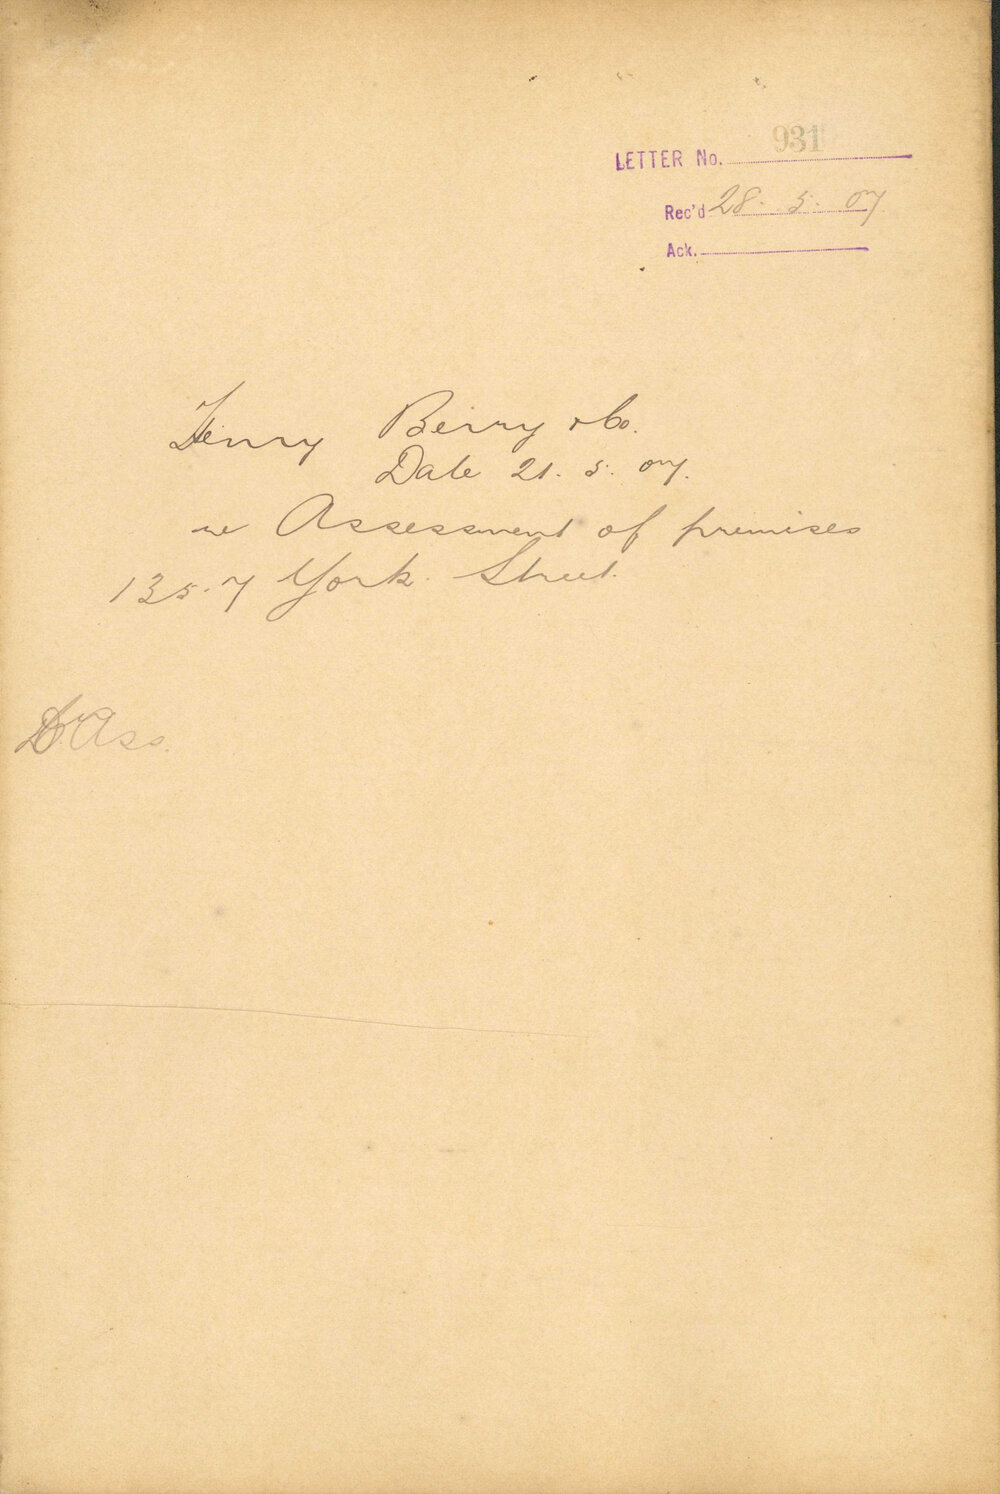 LETTER No. 931
Rec'd 28. 5. 07
Ack.
Henry Berry & Co.
Date 21. 5. 07.
re Assessment of premises
135.7 York Street.
Ass.